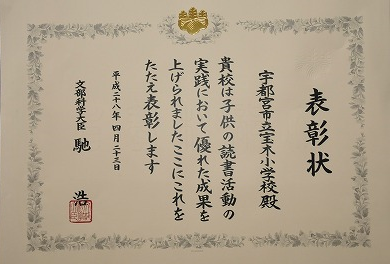 表彰状
宇都宮市立宝木小学校殿
貴校は子供の読書活動の
実践において優れた成果を
上げられましたここにこれを
たたえ表彰します
平成二十八年四月二十三日
文部科学大臣 馳 浩